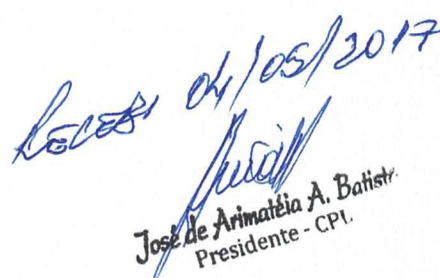 RECEBI 04/05/2017
José de Arimatéia A. Batista
Presidente - CPL